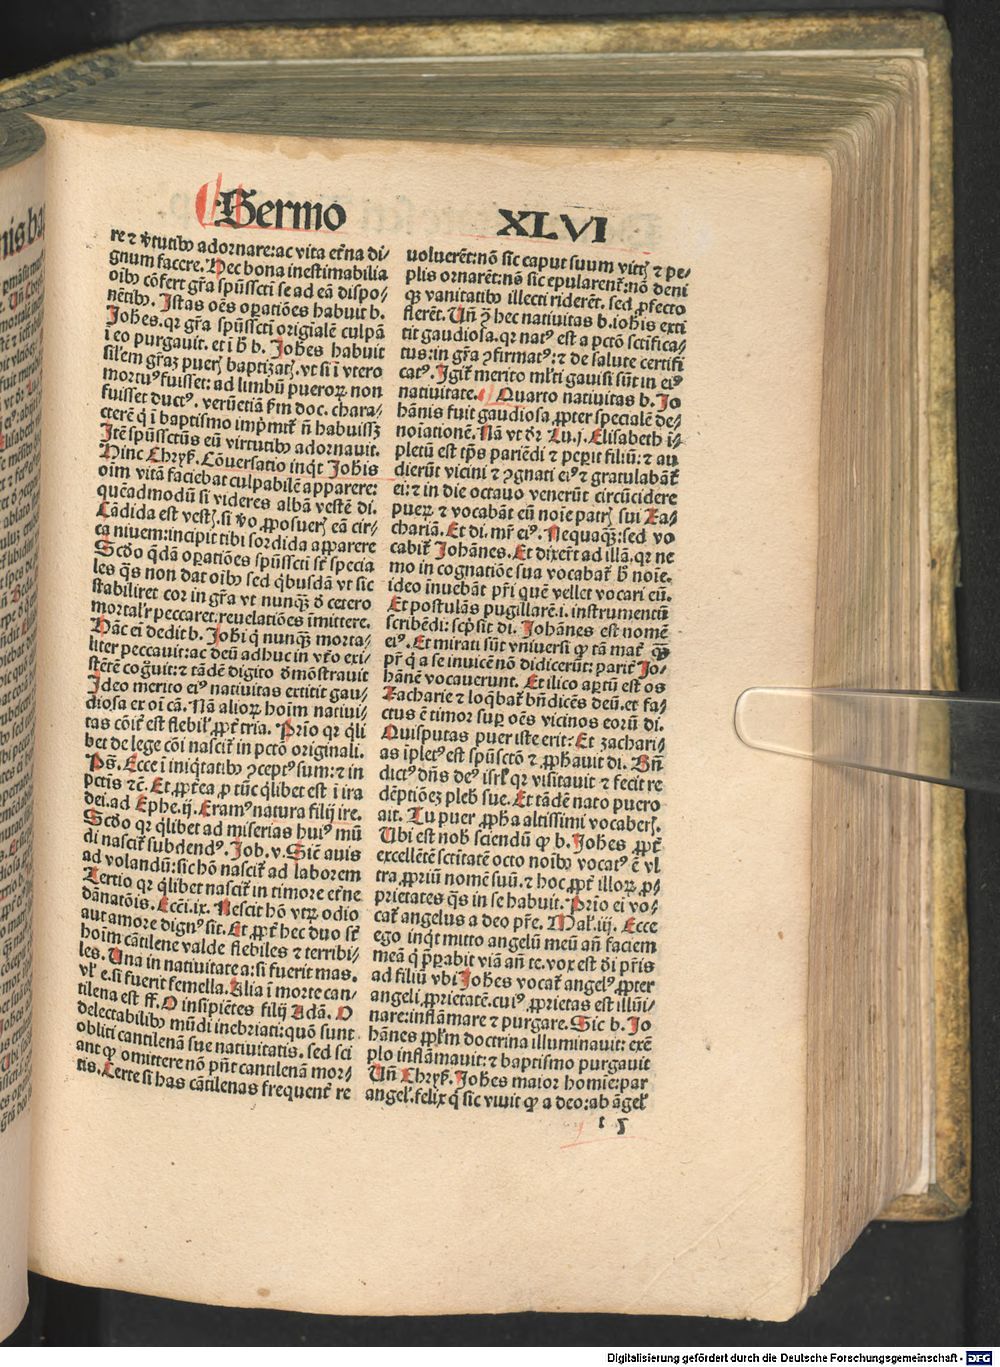 Sermo XLVI
re ⁊ v̾tutibꝰ adornare: ac vita et̾na di⸗
gnum facere. Hec bona inestimabilia
oibꝰ cōfert gr̄a spūssc̄ti se ad eā dispo⸗
nētibꝰ. Istas oēs oꝑatiōes habuit b.
Johēs. qꝛ gr̄a spūssc̄ti origialē culpā
ī eo purgauit. et ī h̄ b. Johēs habuit
sil̄em gr̄aꝫ pueris baptizatis. vt si ī vtero
mortuꝰ fuisset: ad limbū pueroꝝ non
fuisset ductꝰ. verūetiā ẜm doc. chara⸗
cterē q̇ ī baptismo imp̄mit̄ n̄ habuissꝫ
Itē spūssctūs eū virtutibꝰ adornauit.
Hinc Chryẜ. Cōuersatio inq̇t Johis
oīm vitā faciebat culpabilē apparere:
quēadmodū si videres albā vestē di.
Cādida est vestis. si v̾o ꝓposueris eā cir⸗
ca niuem: incipit tibi sordida apparere
Scd̄o q̇dā oꝑatiōes spūssc̄ti st̄ specia
les q̄s non dat oibꝰ sed q̇busdā vt sic
stabiliret cor in gr̄a vt nunqꝫ d̄ cetero
mortal̓r peccaret: reuelatiōes īmittere.
Hāc ei dedit b. Johi q̇ nunqꝫ morta⸗
liter peccauit: ac deū adhuc in vt̓o exi⸗
stētē cog̃uit: ⁊ tādē digito d̄mōstrauit
Ideo merito eiꝰ natiuitas extitit gau⸗
diosa et oi cā. Nā alioꝝ hoīm natiui⸗
tas cōit̄ est flebil̓ ꝓpt̄ tria. Prīo qꝛ q̇li
bet de lege cōi nascit̄ in pctō originali.
Ps̄. Ecce ī iniq̇tatibꝰ ꝯceptꝰ sum: ⁊ in
pctīs ⁊c̄. Et ꝓpt̄ea ꝓ tūc q̇libet est ī ira
dei. ad Ephe. ij. Eramꝰ natura filij ire.
Scd̄o qꝛ q̇libet ad miserias huiꝰ mū
di nascit̄ subdendꝰ. Job. v. Sicē auis
ad volandū: sic hō nascit̄ ad laborem
Tertio qꝛ q̇libet nascit̄ in timore et̓ne
dānatōis. Ecc̄i. ix. Nescit hō vtꝝ odio
aut amore dignꝰ sit. Et ꝓpt̄ hec duo st̄
hoīm cātilene valde flebiles ⁊ terribi⸗
les. Una in natiuitate a: si fuerit mas.
vl̓ e. si fuerit femella. Alia ī morte can⸗
tilena est ff. O insipiētes filij Adā. O
delectabilibꝰ mūdi inebriati: quō sunt
obliti cantilenā sue natiuitatis. sed sci
ant ꝙ omittere nō pn̄t cantilenā mor⸗
tis. Certe si has cātilenas frequent̄ re
uoluerēt: nō sic caput suum vittis ⁊ pe⸗
plis ornarēt: nō sic epularent̄: nō deni
qꝫ vanitatibꝰ illecti riderēt. sed ꝓfecto
flerēt. Un̄ ꝗ̄ hec natiuitas b. iohis exti
tit gaudiosa. qꝛ natꝰ est a pctō sctifica⸗
tus: in gr̄a ꝯfirmatꝰ: ⁊ de salute certifi
catꝰ. Igit̄ merito ml̓ti gauisi sūt in eiꝰ
natiuitate. Quarto natiuitas b. Jo
hānis fuit gaudiosa ꝓpter specialē de⸗
noīationē. Nā vt dr̄ Lu. j. Elisabeth ī⸗
pletū est tp̄s pariēdi ⁊ peꝑit filiū: ⁊ au
dierūt vicini ⁊ ꝯgnati eiꝰ ⁊ gratulabāt̄
ei: ⁊ in die octauo venerūt circūcidere
pueꝝ ⁊ vocabāt eū noīe patris sui Za⸗
chariā. Et di. mr̄ eiꝰ. Nequaqꝫ: sed vo
cabit̄ Johānes. Et dixer̄t ad illā. qꝛ ne
mo in cognatiōe sua vocabat̄ h̄ noīe.
ideo inuebāt pr̄i quē vellet vocari eū.
Et postulās pugillarē. i. instrumentū
scribēdi: scp̄sit di. Johānes est nomē
eiꝰ. Et mirati sūt vniuersi ꝙ tā mat̄ qꝫ
pr̄ q̇ a se inuicē nō didicerūt: parit̄ Jo⸗
hānē vocauerunt. Et ilico aꝑtū est os
Zacharie ⁊ loq̇bat̄ bn̄dicēs deū. et fa⸗
ctus ē timor suꝑ oēs vicinos eorū di.
Quisputas puer iste erit: Et zachari⸗
as īpletꝰ est spūsctō ⁊ ꝓphauit di. Bn̄
dictꝰ dn̄s deꝰ isrl̓ qꝛ visitauit ⁊ fecit re
dēptiōeꝫ plebis sue. Et tādē nato puero
ait. Tu puer ꝓpha altissimi vocaberis.
Ubi est nobis sciendū ꝙ b. Johēs ꝓpt̄
excellētē sctitatē octo noibꝰ vocatꝰ ē vl
tra ꝓpriū nomē suū. ⁊ hoc ꝓpt̄ illoꝝ ꝓ⸗
prietates q̄s in se habuit. Prīo ei vo⸗
cat̄ angelus a deo pr̄e. Mal̓. iij. Ecce
ego inq̇t mitto angelū meū an̄ faciem
meā q̇ p̄ꝑabit viā an̄ te. vox est dī pr̄is
ad filiū vbi Johēs vocat̄ angelꝰ ꝓpter
angeli ꝓprietatē. cuiꝰ ꝓprietas est illūi⸗
nare: inflāmare ⁊ purgare. Sic b. Jo
hānes ppl̓m doctrina illuminauit: exē
plo inflāmauit: ⁊ baptismo purgauit
Un̄ Chryẜ. Johēs maior homīe: par
angel̓. felix q̇ sic viuit ꝙ a deo: ab āgel̓
t 5